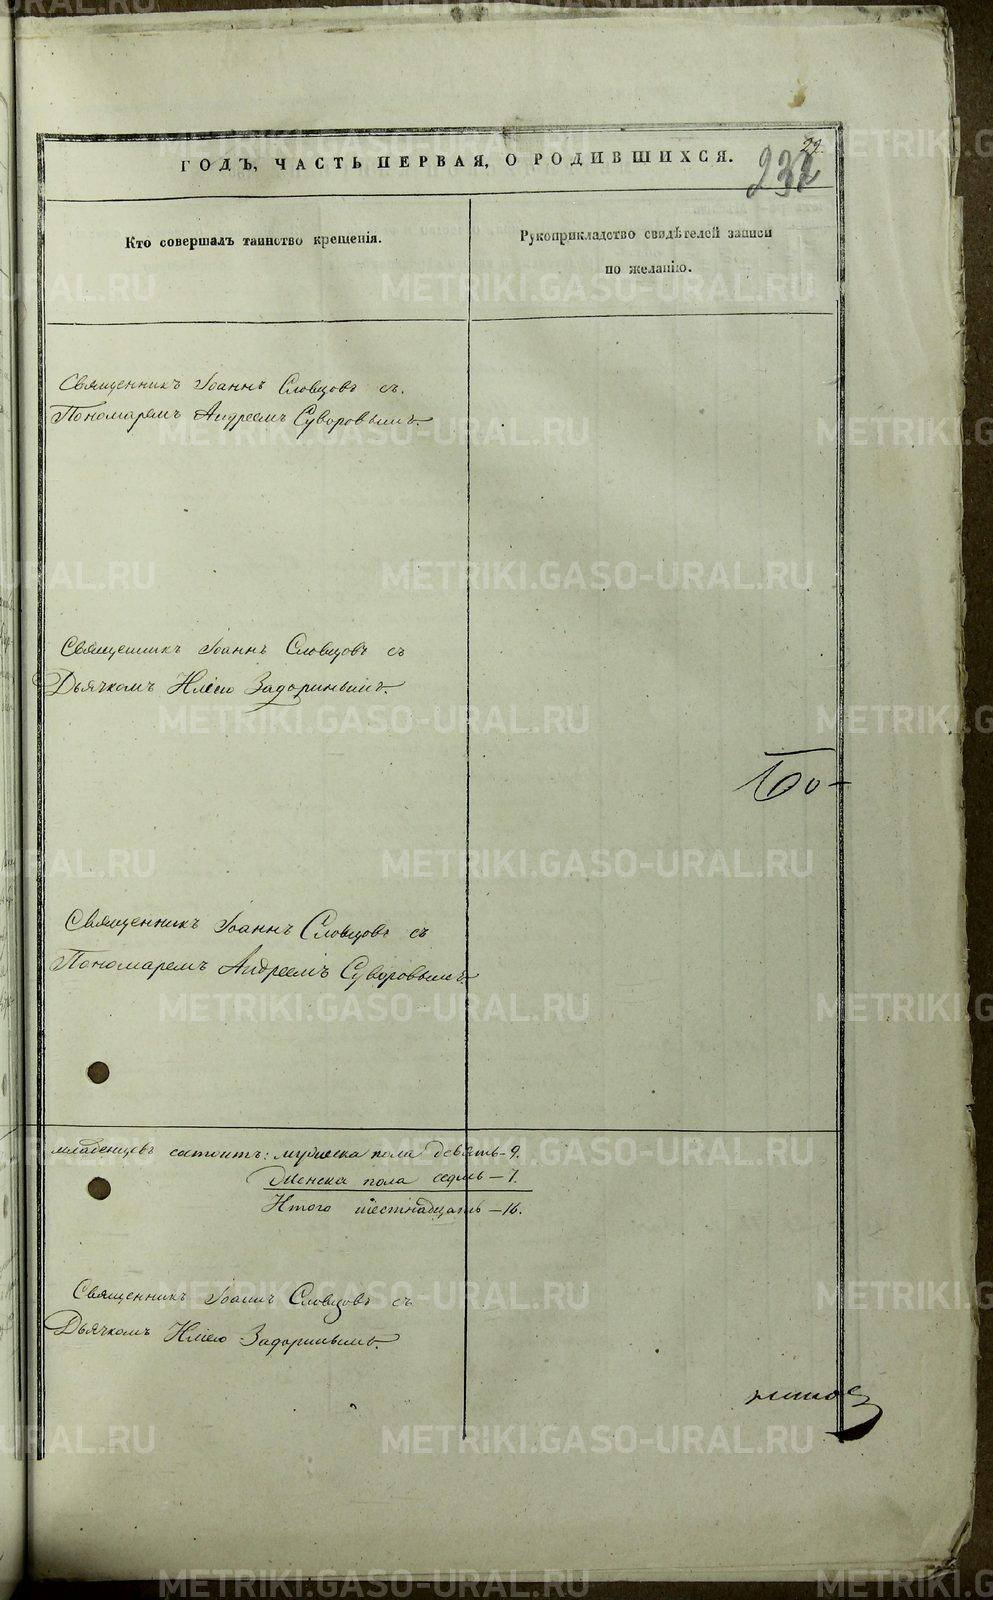 29.
ГОДЪ, ЧАСТЬ ПЕРВАЯ, О РОДИВШИХСЯ.
232
Кто совершалъ таинство крещенія.
Рукоприкладство свидѣтелей записи
по желанію.
Священникъ Іоаннъ Словцовъ съ
Пономаремъ Андреемъ Суворовымъ.
Священникъ Іоаннъ Словцовъ съ
Дьячкомъ Иліею Задоринымъ.
Священникъ Іоаннъ Словцовъ съ
Пономаремъ Андреемъ Суворовымъ.
младенцевъ состоитъ: мужеска пола девять – 9.
Женска пола седмь – 7.
Итого шестнадцать – 16.
Священникъ Іоаннъ Словцовъ съ
Дьячкомъ Иліею Задоринымъ.
METRIKI.GASO-URAL.RU